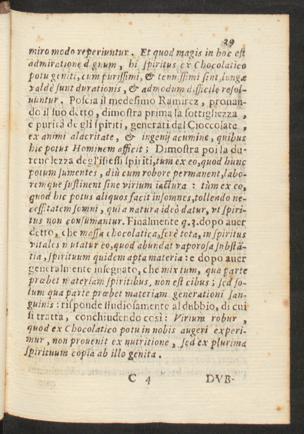 29
miro modo reperiuntur. Et quod magis in hoc est
admiratione dignum, hi spiritus ex Chocolatico
potu geniti, cum purissimi, & tenuissimi sint, longæ
valdè sunt durationis, & admodum difficilè resol-
uuntur. Poscia il medesimo Ramirez, prouan-
do il suo detto, dimostra prima la sottighezza,
e purità degli spiriti, generati dal Cioccolate,
ex animi alacritate, & ingenij acumine, quibus
hic potus Hominem afficit; Dimostra poi la du-
reuolezza degl'istessi spiriti, tum ex eo, quod hunc
potum sumentes, diù cum robore permanent, labo-
remque sustinent sine virium iactura: tùm ex eo,
quod hic potus aliquos facit insomnes, tollendo ne-
cessitatem somni, quia natura ideò datur, vt spiri-
tus non consumantur. Finalmente q.3. dopo auer
detto, che massa chocolatica, ferè tota, in spiritus
vitales mutatur eo, quod abundat vaporosa substã-
tia, spirituum quidem apta materia: e dopo auer
generalmente insegnato, che mixtum, qua parte
præbet materiam spiritibus, non est cibus; sed so-
lum qua parte præbet materiam generationi san-
guinis: risponde studiosamente al dubbio, di cui
si tratta, conchiudendo così: Virium robur,
quod ex Chocolatico potu in nobis augeri experi-
mur, non prouenit ex nutritione, sed ex plurima
spirituum copia ab illo genita.
C 4 DVB-